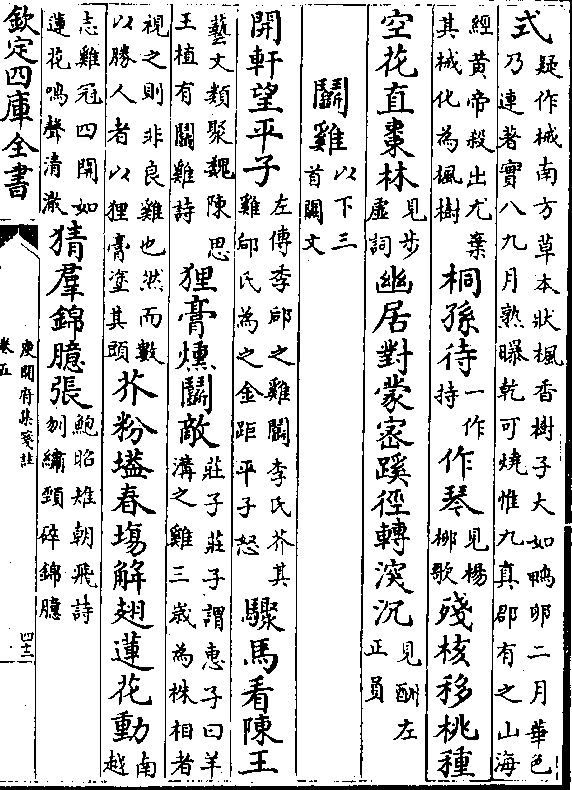 式疑作械南方草本狀楓香樹子大如鴨卵二月華色乃連著實八九月熟曝乾可燒惟九真郡有之山海
經黃帝殺出尤棄其械化為楓樹桐孫待一作持作琴見楊柳歌殘核移桃種
空花直棗林見步虛詞幽居對蒙宻蹊徑轉深沉見酬左正員
鬭雞以下三首闕文
開軒望平子左傳季郈之雞鬭季氏芥其雞郈氏為之金距平子怒驟馬看陳王
藝文類聚魏陳思王植有鬭雞詩狸膏燻鬭敵莊子莊子謂恵子曰羊溝之雞三歲為株相者
視之則非良雞也然而數以勝人者以狸膏塗其頭芥粉壒春塲解翅蓮花動南越
志雞冠四開如蓮花鳴聲清澈猜羣錦臆張鮑昭雉朝飛詩刎繡頸碎錦臆
欽定四庫全書
庾開府集箋註
卷五
四十二